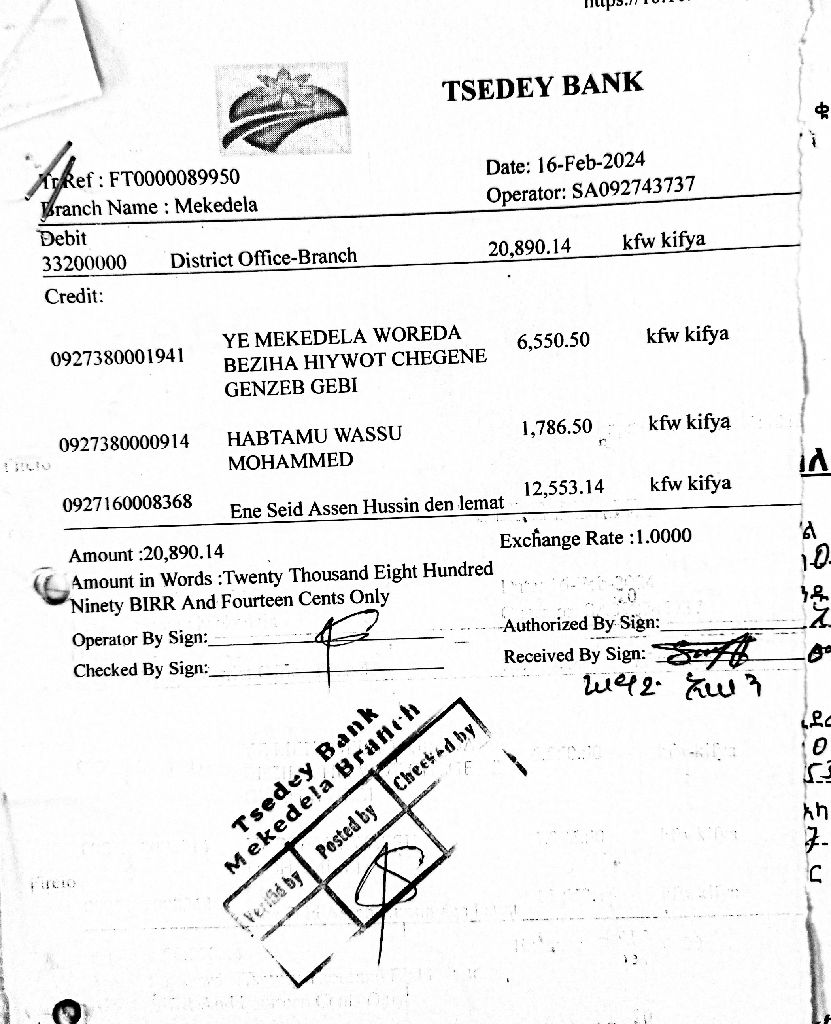 TSEDEY BANK
Tr Ref : FT0000089950
Date: 16-Feb-2024
Branch Name : Mekedela
Operator: SA092743737
Debit
33200000 District Office-Branch 20,890.14 kfw kifya
Credit:
0927380001941 YE MEKEDELA WOREDA 6,550.50 kfw kifya
BEZIHA HIYWOT CHEGENE
GENZEB GEBI
0927380000914 HABTAMU WASSU 1,786.50 kfw kifya
MOHAMMED
0927160008368 Ene Seid Assen Hussin den lemat 12,553.14 kfw kifya
Amount :20,890.14
Exchange Rate :1.0000
Amount in Words :Twenty Thousand Eight Hundred
Ninety BIRR And Fourteen Cents Only
Operator By Sign:
Authorized By Sign:
Checked By Sign:
Received By Sign:
Tsedey Bank
Mekedela Branch
Verifid by
Posted by
Checked by